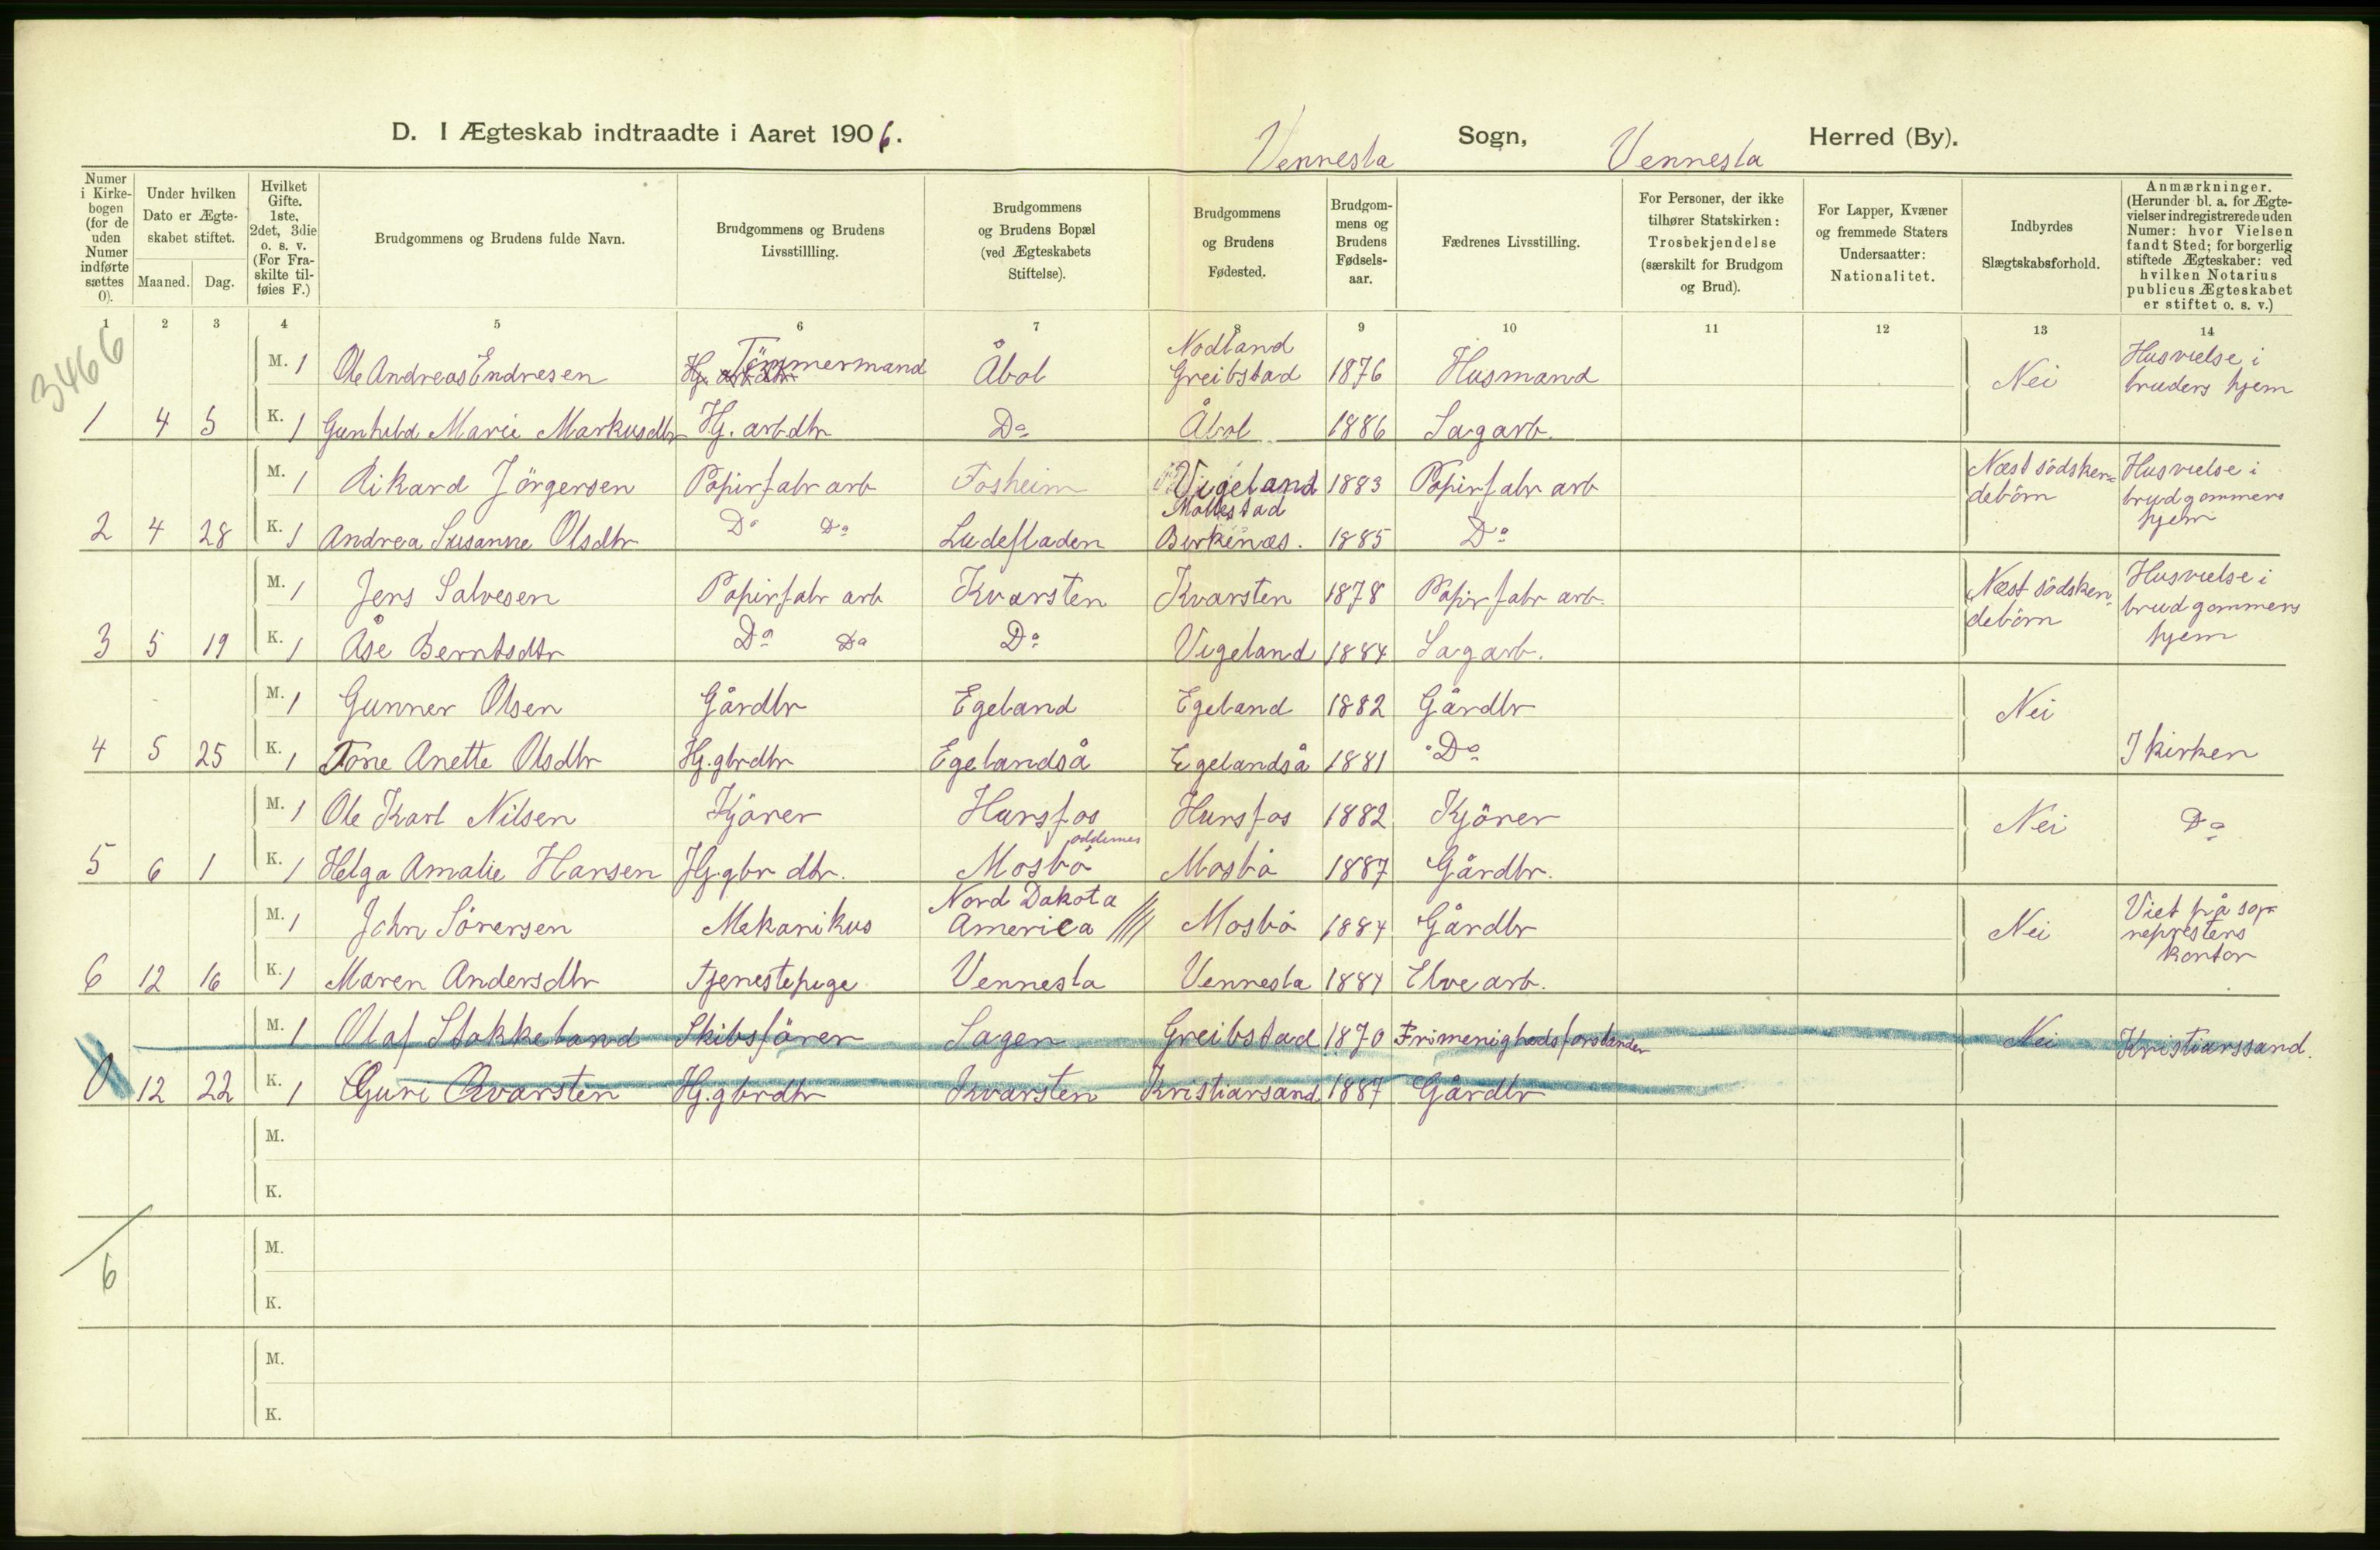 D. I Ægteskab indtraadte i Aaret 1906. Vennesla Sogn, Vennesla Herred (By).
Numer i Kirkebogen (for de uden Numer indførte sættes 0).
Under hvilken Dato er Ægteskabet stiftet.
Maaned. Dag.
Hvilket Gifte. 1ste, 2det, 3die o. s. v. (For Fraskilte tilføies F.)
Brudgommens og Brudens fulde Navn.
Brudgommens og Brudens Livsstillling.
Brudgommens og Brudens Bopæl (ved Ægteskabets Stiftelse).
Brudgommens og Brudens Fødested.
Brudgommens og Brudens Fødselsaar.
Fædrenes Livsstilling.
For Personer, der ikke tilhører Statskirken: Trosbekjendelse (særskilt for Brudgom og Brud).
For Lapper, Kvæner og fremmede Staters Undersaatter: Nationalitet.
Indbyrdes Slægtskabsforhold.
Anmærkninger. (Herunder bl. a. for Ægtevielser indregistrerede uden Numer: hvor Vielsen fandt Sted; for borgerlig stiftede Ægteskaber: ved hvilken Notarius publicus Ægteskabet er stiftet o. s. v.)
1 2 3 4 5 6 7 8 9 10 11 12 13 14
3466
M. 1 Ole Andreas Endresen Hg. arb dtr Tömmermand Åbol Nodland Greibstad 1876 Husmand Nei Husvielse i bruders hjem
1 4 5 K. 1 Gunhild Marie Markusdtr Hg. arb dtr Do Åbol 1886 Sagarb.
M. 1 Rikard Jörgersen Papirfabr arb Fosheim Vigeland 1883 Papirfabr arb Næst södskendebörn Husvielse i brudgommers hjem
2 4 28 K. 1 Andrea Susanne Olsdtr Do Do Ludefladen Mollestad Birkenæs. 1885 Do
M. 1 Jens Salvesen Papirfabr arb Kvarsten Kvarsten 1878 Papirfabr arb. Næst södskendebörn Husvielse i brudgommers hjem
3 5 19 K. 1 Åse Berntsdtr Do Do Do Vigeland 1884 Sagarb.
M. 1 Gunner Olsen Gårdbr Egeland Egeland 1882 Gårdbr Nei
4 5 25 K. 1 Tone Anette Olsdtr Hg. gbrdtr Egelandså Egelandså 1881 Do I kirken
M. 1 Ole Karl Nilsen Kjörer Hunsfos Hunsfos 1882 Kjörer Nei Do
5 6 1 K. 1 Helga Amalie Hansen Hg. gbr dtr. Mosbö oddernes Mosbö 1887 Gårdbr.
M. 1 John Sörensen Mekanikus Nord Dakota America Mosbö 1884 Gårdbr Nei Viet på sognepresters kontor
6 12 16 K. 1 Maren Andersdtr Tjenestepige Vennesla Vennesla 1884 Elvearb.
M. 1 Olaf Stakkeland Skibsförer Sagen Greibstad 1870 Frimenighedsforstander Nei Kristianssand.
0 12 22 K. 1 Guri Kvarsten Hg. gbrdtr Kvarsten Kristiansand 1887 Gårdbr
M.
K.
M.
6
K.
M.
K.